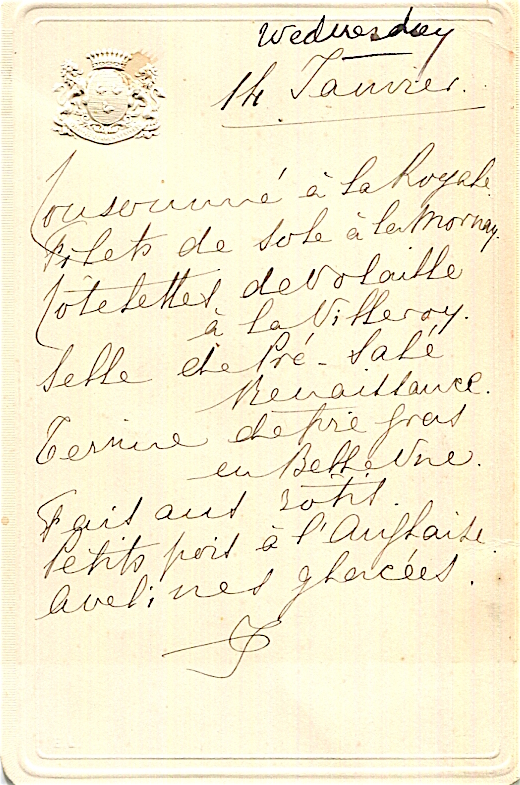 Wednesday
14 Janvier.
Consommé à la Royale
Filets de Sole à la Mornay.
Côtelettes de Volaille
à la Villeroy.
Selle de Pré-Salé
Renaissance.
Terrine de foie gras
en Belle Vue.
Faisans rôtis.
Petits pois à l'Anglaise.
Avelines glacées.